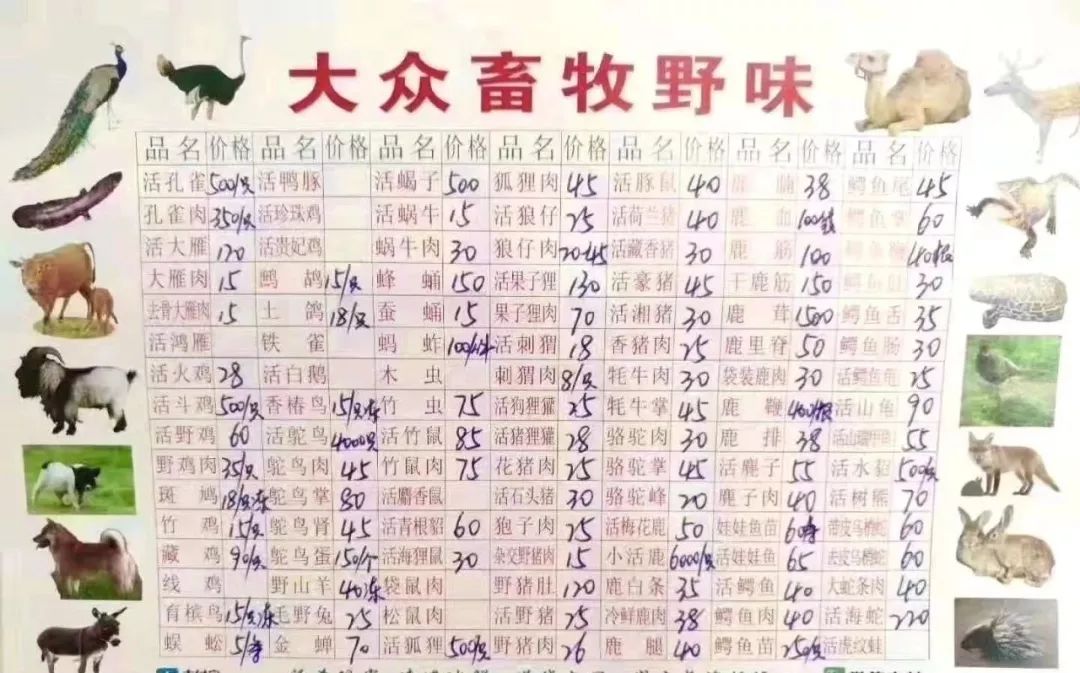 大众畜牧野味
品名 价格 品名 价格 品名 价格 品名 价格 品名 价格 品名 价格 品名 价格
活孔雀 500/只 活鸭豚 活蝎子 500 狐狸肉 45 活豚鼠 40 鹿脯 38 鳄鱼尾 45
孔雀肉 350/只 活珍珠鸡 活蜗牛 15 活狼仔 25 活荷兰猪 40 鹿血 鳄鱼掌 60
活大雁 120 活贵妃鸡 蜗牛肉 30 狼仔肉 20-45 活藏香猪 30 鹿筋 100 鳄鱼
大雁肉 15 鹧鸪 15/只 蜂蛹 150 活果子狸 130 活豪猪 45 干鹿筋 150 鳄鱼肚 30
去骨大雁肉 15 土鸽 18/只 蚕蛹 15 果子狸肉 70 活湘猪 30 鹿茸 1500 鳄鱼舌 35
活鸿雁 铁雀 蚂蚱 活刺猬 18 香猪肉 25 鹿里脊 50 鳄鱼肠 30
活火鸡 28 活白鹅 木虫 刺猬肉 8/只 牦牛肉 30 袋装鹿肉 30 活鳄鱼龟 25
活斗鸡 500/只 香椿鸟 15/只冻 竹虫 75 活狗狸獾 25 牦牛掌 45 鹿鞭 活山龟 90
活野鸡 60 活鸵鸟 4000只 活竹鼠 85 活猪狸獾 28 骆驼肉 30 鹿排 38 55
野鸡肉 35/只 鸵鸟肉 45 竹鼠肉 75 花猪肉 25 骆驼掌 45 活麂子 55 活水貂 500/只
斑鸠 18/只冻 鸵鸟掌 80 活麝香鼠 活石头猪 30 骆驼峰 20 麂子肉 40 活树熊 70
竹鸡 15/只 鸵鸟肾 45 活青根貂 60 狍子肉 25 活梅花鹿 50 娃娃鱼苗 带皮马榔蛇 60
藏鸡 90/只 鸵鸟蛋 150/个 活海狸鼠 30 杂交野猪肉 15 小活鹿 6000/只 活娃娃鱼 65 去皮马榔蛇 60
线鸡 野山羊 40冻 袋鼠肉 野猪肚 120 鹿白条 35 活鳄鱼 40 大蛇条肉 40
育槟鸟 15/只冻 毛野兔 25 松鼠肉 活野猪 25 冷鲜鹿肉 38 鳄鱼肉 40 活海蛇 220
蜈蚣 5/条 金蝉 70 活狐狸 500/只 野猪肉 26 鹿腿 40 鳄鱼苗 250/只 活虎纹蛙